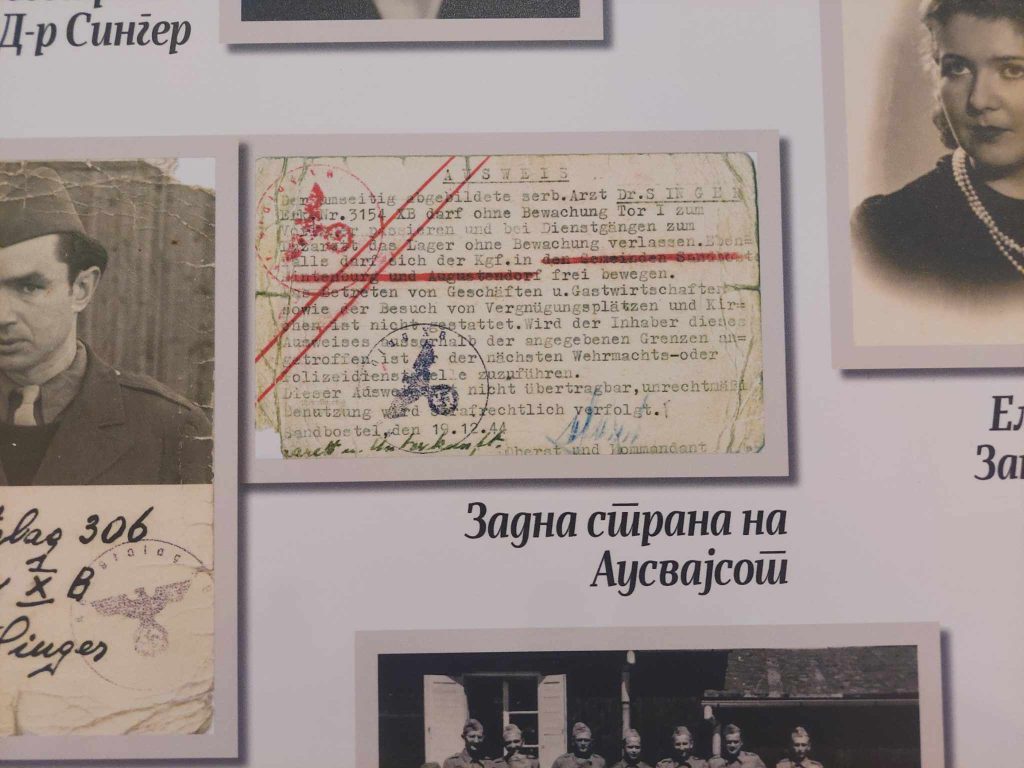 Д-р Сингер
AUSWEIS
Der umseitig abgebildete serb.Arzt Dr.SINGER
Erk.Nr.3154 XB darf ohne Bewachung Tor I zum
passieren und bei Dienstgängen zum
Lazarett das Lager ohne Bewachung verlassen.Eben-
falls darf sich der Kgf.in den Gemeinden
und Augustendorf frei bewegen.
Das Betreten von Geschäften u.Gastwirtschaften
sowie der Besuch von Vergnügungsplätzen und Kir-
chen ist nicht gestattet.Wird der Inhaber dieses
Ausweises ausserhalb der angegebenen Grenzen an-
getroffen,ist er der nächsten Wehrmachts-oder
Polizeidienststelle zuzuführen.
Dieser Ausweis nicht übertragbar,unrechtmäßi
Benutzung wird strafrechtlich verfolgt.
Sandbostel,den 19.12.44
Oberst und Kommandant
306
X B
Singer
Stalag
Задна страна на
Аусвајсот
Ел
За